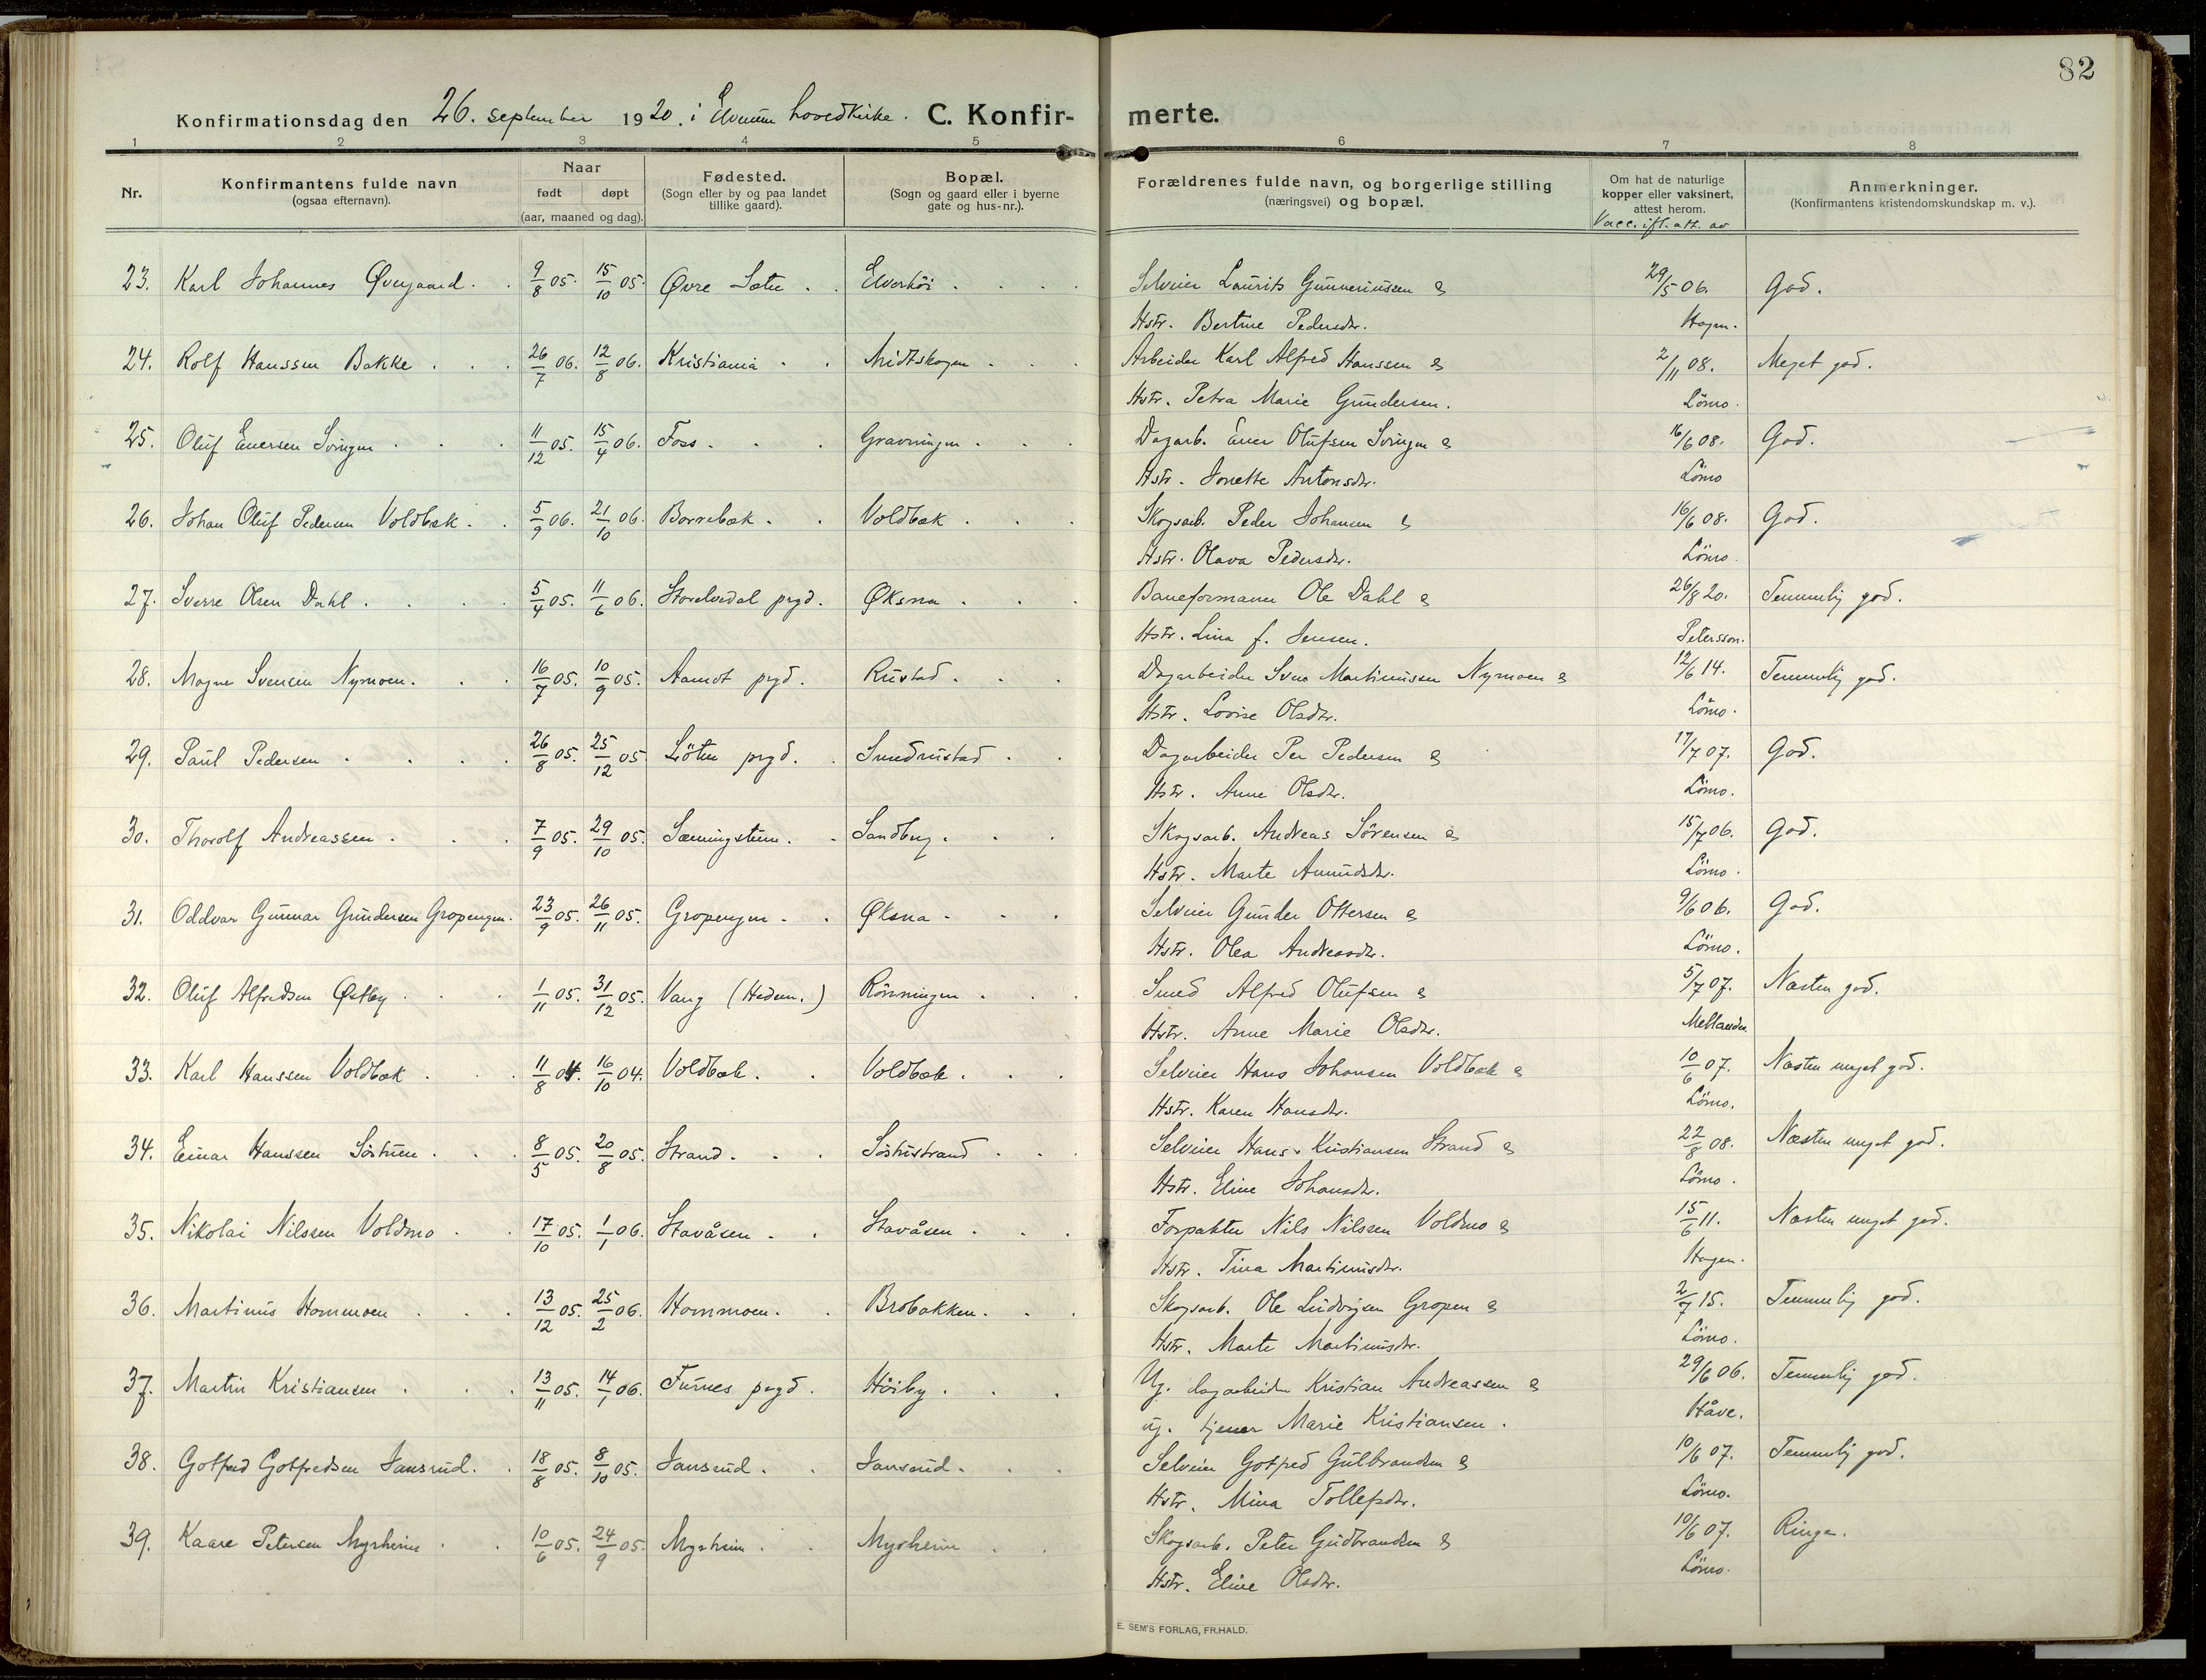 82
Konfirmationsdag den 26. september 1920. i Elverum hovedkirke. C. Konfirmerte.
1 2 3 4 5 6 7 8
Nr. | Konfirmantens fulde navn (ogsaa efternavn). | Naar født døpt (aar, maaned og dag). | Fødested. (Sogn eller by og paa landet tillike gaard). | Bopæl. (Sogn og gaard eller i byerne gate og hus-nr.). | Forældrenes fulde navn, og borgerlige stilling (næringsvei) og bopæl. | Om hat de naturlige kopper eller vaksinert, attest herom. Vacc. ifl. att. av | Anmerkninger. (Konfirmantens kristendomskundskap m. v.).
23. Karl Johannes Øvergaard. 9/8 05. 15/10 05. Øvre Sætre. Elverhöi. Selveier Laurits Gunneriussen & 29/5 06. God.
Hstr. Bertine Pedersdtr. Hagen.
24. Rolf Hanssen Bakke. 26/7 06. 12/8 06. Kristiania. Midtskogen. Arbeider Karl Alfred Hanssen & 2/11 08. Meget god.
Hstr. Petra Marie Gundersen. Lömo.
25. Oluf Enersen Svingen. 11/12 05. 15/4 06. Foss. Gravningen. Dagarb. Ener Olufsen Svingen & 16/6 08. God.
Hstr. Jonette Antonsdtr. Lömo
26. Johan Oluf Pedersen Voldbæk. 5/9 06. 21/10 06. Borrebæk. Voldbæk. Skogsarb. Peder Johansen & 16/6 08. God.
Hstr. Olava Pedersdtr. Lömo.
27. Sverre Olsen Dahl. 5/4 05. 11/6 06. Storelvedal prgd. Øksna. Baneformann Ole Dahl & 26/8 20. Temmelig god.
Hstr. Lina f. Jensen. Petersson.
28. Magne Svensen Nymoen. 16/7 05. 10/9 05. Aamot prgd. Rustad. Dagarbeider Sven Martinussen Nymoen & 12/6 14. Temmelig god.
Hstr. Lovise Olsdtr. Lömo.
29. Paul Pedersen. 26/8 05. 25/12 05. Löten prgd. Smedrustad. Dagarbeider Per Pedersen & 17/7 07. God.
Hstr. Anne Olsdtr. Lömo.
30. Thorolf Andreassen. 7/9 05. 29/10 05. Sandberg. Skogsarb. Andreas Sörensen & 15/7 06. God.
Hstr. Marte Amundsdtr. Lömo.
31. Oddvar Gunnar Gundersen Gropengen. 23/9 05. 26/11 05. Gropengen. Øksna. Selveier Gunder Ottersen & 9/6 06. God.
Hstr. Olea Andreasdtr. Lömo.
32. Oluf Alfredsen Østby. 1/11 05. 31/12 05. Vang (Hedem.) Rönningen. Smed Alfred Olufsen & 5/7 07. Næsten god.
Hstr. Anne Marie Olsdtr. Mellanden
33. Karl Hanssen Voldbæk. 11/8 04. 16/10 04. Voldbæk. Voldbæk. Selveier Hans Johansen Voldbæk & 10/6 07. Næsten meget god.
Hstr. Karen Hansdtr. Lömo.
34. Einar Hanssen Söstuen. 8/5 05. 20/8 05. Strand. Söstustrand. Selveier Hans Kristiansen Strand & 22/8 08. Næsten meget god.
Hstr. Eline Johansdtr. Lömo.
35. Nikolai Nilssen Voldmo. 17/10 05. 1/1 06. Stavåsen. Stavåsen. Forpakter Nils Nilssen Voldmo & 15/6 11. Næsten meget god.
Hstr. Tina Martinusdtr. Hagen.
36. Martinus Hommoen. 13/12 05. 25/2 06. Hommoen. Brobakken. Skogsarb. Ole Ludvigsen Gropen & 2/7 15. Temmelig god.
Hstr. Marte Martinusdtr. Lömo.
37. Martin Kristiansen. 13/11 05. 14/1 06. Furnes prgd. Höiby. Ug. dagarbeider Kristian Andreassen & 29/6 06. Temmelig god.
ug. tjener Marie Kristiansen. Håve.
38. Gotfred Gotfredsen Jansrud. 18/8 05. 8/10 05. Jansrud. Jansrud. Selveier Gotfred Gulbrandsen & 10/6 07. Temmelig god.
Hstr. Mina Tollefsdtr. Lömo.
39. Kaare Petersen Myrheim. 10/6 05. 24/9 05. Myrheim. Myrheim. Skogsarb. Peter Gudbrandsen & 10/6 07. Ringe.
Hstr. Eline Olsdtr. Lömo.
E. SEM'S FORLAG, FR.HALD.